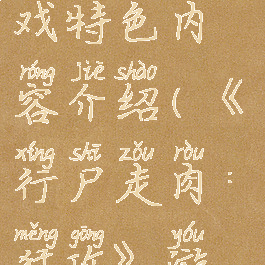 戏特色内
róng jiè shào
容介绍(《
xíng shī zǒu ròu
行尸走肉:
měng gōng yóu
猛攻》游